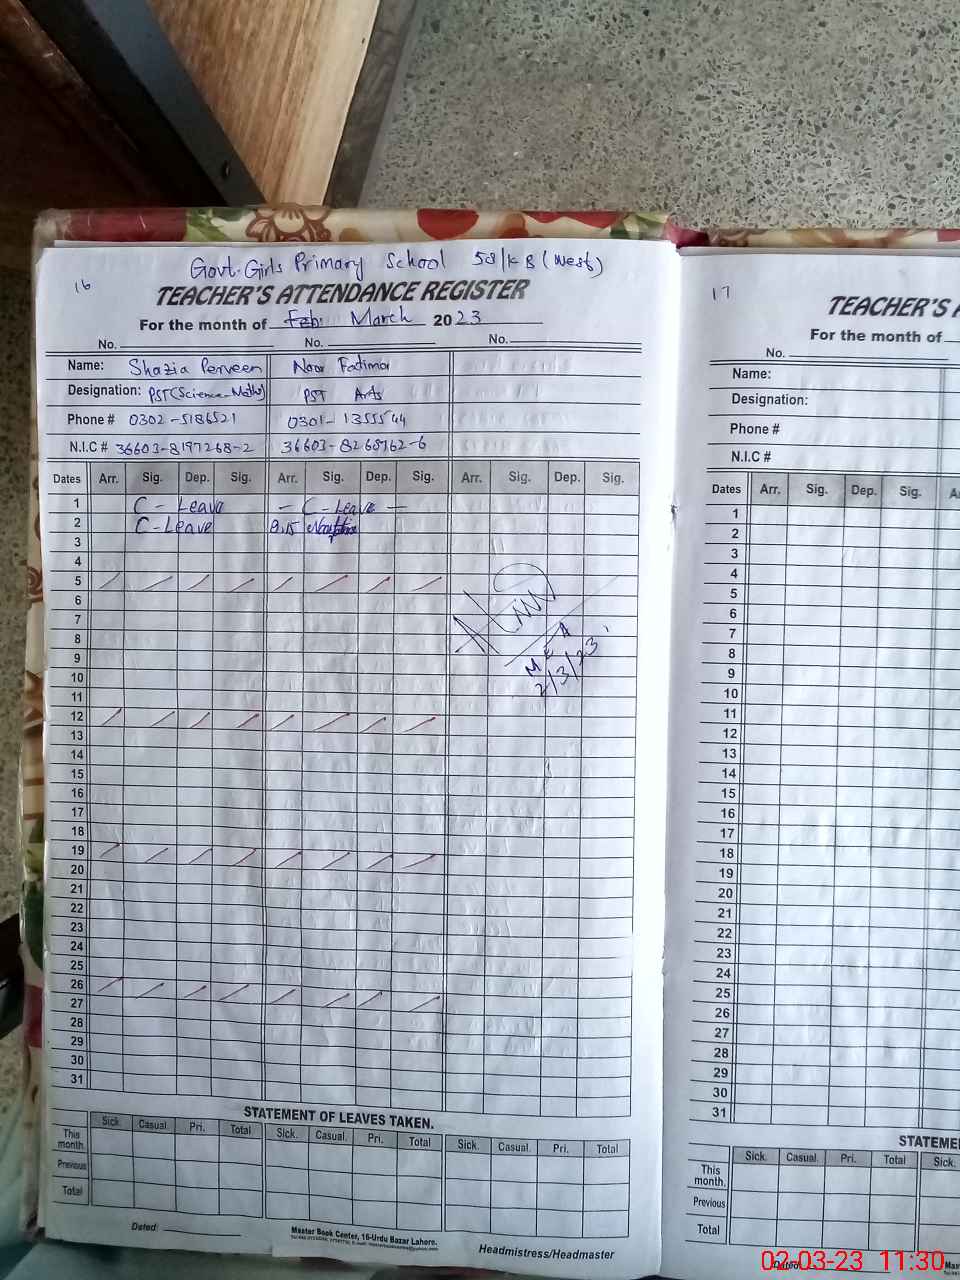 Govt. Girls Primary School 58/KB (West)
16
TEACHER'S ATTENDANCE REGISTER
For the month of Feb March 2023
No. No. No.
Name: Shazia Perveen Noor Fatima
Designation: PST (Science-Math) PST Arts
Phone # 0302-5186521 0301-1355544
N.I.C # 36603-8197268-2 36603-8268762-6
Dates Arr. Sig. Dep. Sig. Arr. Sig. Dep. Sig. Arr. Sig. Dep. Sig.
1 C-Leave - C-Leave -
2 C-Leave 8.15
3
4
5
6
7
8
9
10
11
12
13
14
15
16
17
18
19
20
21
22
23
24
25
26
27
28
29
30
31
MEA
2/3/23
STATEMENT OF LEAVES TAKEN.
Sick. Casual. Pri. Total Sick. Casual. Pri. Total Sick. Casual. Pri. Total
This month.
Previous
Total
Dated:
Master Book Center, 16-Urdu Bazar Lahore.
Headmistress/Headmaster
17
TEACHER'S A
For the month of
No.
Name:
Designation:
Phone #
N.I.C #
Dates Arr. Sig. Dep. Sig.
1
2
3
4
5
6
7
8
9
10
11
12
13
14
15
16
17
18
19
20
21
22
23
24
25
26
27
28
29
30
31
STATEME
Sick. Casual. Pri. Total Sick.
This month.
Previous
Total
Dated
02-03-23 11:30